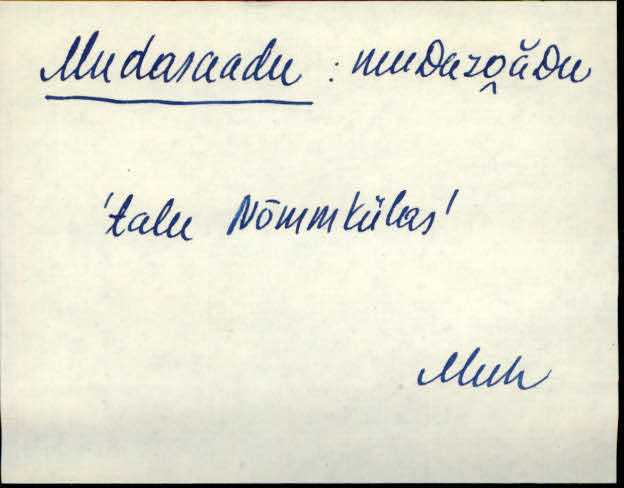 Mudasaadu : muDazo̭ăDu
'talu Nõmmkülas'
Muh